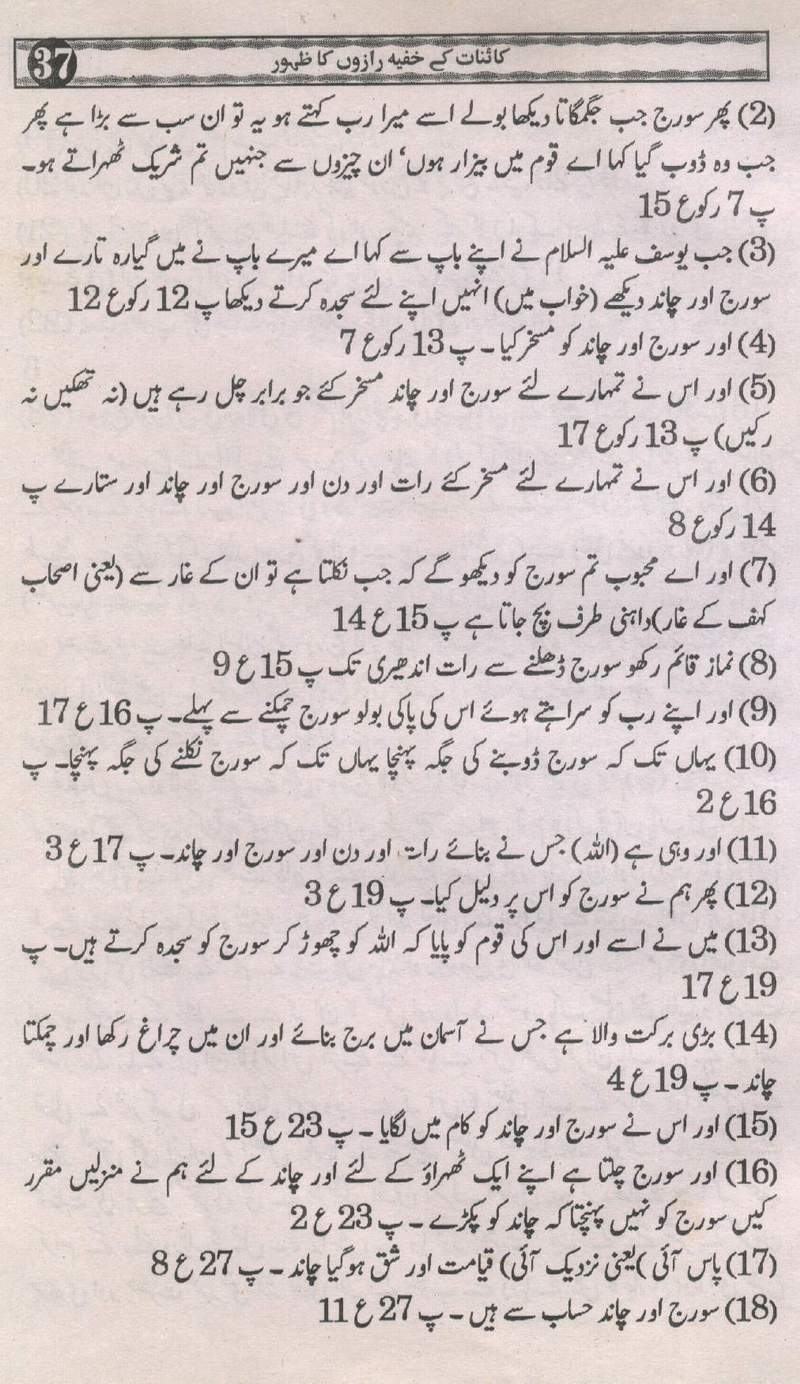 37
کائنات کے خفیہ رازوں کا ظہور
(2) پھر سورج جب جگمگاتا دیکھا بولے اسے میرا رب کہتے ہو یہ تو ان سب سے بڑا ہے پھر
جب وہ ڈوب گیا کہا اے قوم میں بیزار ہوں‘ ان چیزوں سے جنہیں تم شریک ٹھہراتے ہو۔
پ 7 رکوع 15
(3) جب یوسف علیہ السلام نے اپنے باپ سے کہا اے میرے باپ نے میں گیارہ تارے اور
سورج اور چاند دیکھے (خواب میں) انہیں اپنے لئے سجدہ کرتے دیکھا پ 12 رکوع 12
(4) اور سورج اور چاند کو مسخر کیا ۔ پ 13 رکوع 7
(5) اور اس نے تمہارے لئے سورج اور چاند مسخر کئے جو برابر چل رہے ہیں (نہ تھکیں نہ
رکیں) پ 13 رکوع 17
(6) اور اس نے تمہارے لئے مسخر کئے رات اور دن اور سورج اور چاند اور ستارے پ
14 رکوع 8
(7) اور اے محبوب تم سورج کو دیکھو گے کہ جب نکلتا ہے تو ان کے غار سے (یعنی اصحاب
کہف کے غار) داہنی طرف بچ جاتا ہے پ 15 ع 14
(8) نماز قائم رکھو سورج ڈھلنے سے رات اندھیری تک پ 15 ع 9
(9) اور اپنے رب کو سراہتے ہوئے اس کی پاکی بولو سورج چمکنے سے پہلے۔ پ 16 ع 17
(10) یہاں تک کہ سورج ڈوبنے کی جگہ پہنچا یہاں تک کہ سورج نکلنے کی جگہ پہنچا۔ پ
16 ع 2
(11) اور وہی ہے (اللہ) جس نے بنائے رات اور دن اور سورج اور چاند۔ پ 17 ع 3
(12) پھر ہم نے سورج کو اس پر دلیل کیا۔ پ 19 ع 3
(13) میں نے اسے اور اس کی قوم کو پایا کہ اللہ کو چھوڑ کر سورج کو سجدہ کرتے ہیں۔ پ
19 ع 17
(14) بڑی برکت والا ہے جس نے آسمان میں برج بنائے اور ان میں چراغ رکھا اور چمکتا
چاند ۔ پ 19 ع 4
(15) اور اس نے سورج اور چاند کو کام میں لگایا ۔ پ 23 ع 15
(16) اور سورج چلتا ہے اپنے ایک ٹھہراؤ کے لئے اور چاند کے لئے ہم نے منزلیں مقرر
کیں سورج کو نہیں پہنچتا کہ چاند کو پکڑے ۔ پ 23 ع 2
(17) پاس آئی )یعنی نزدیک آئی) قیامت اور شق ہوگیا چاند ۔ پ 27 ع 8
(18) سورج اور چاند حساب سے ہیں ۔ پ 27 ع 11